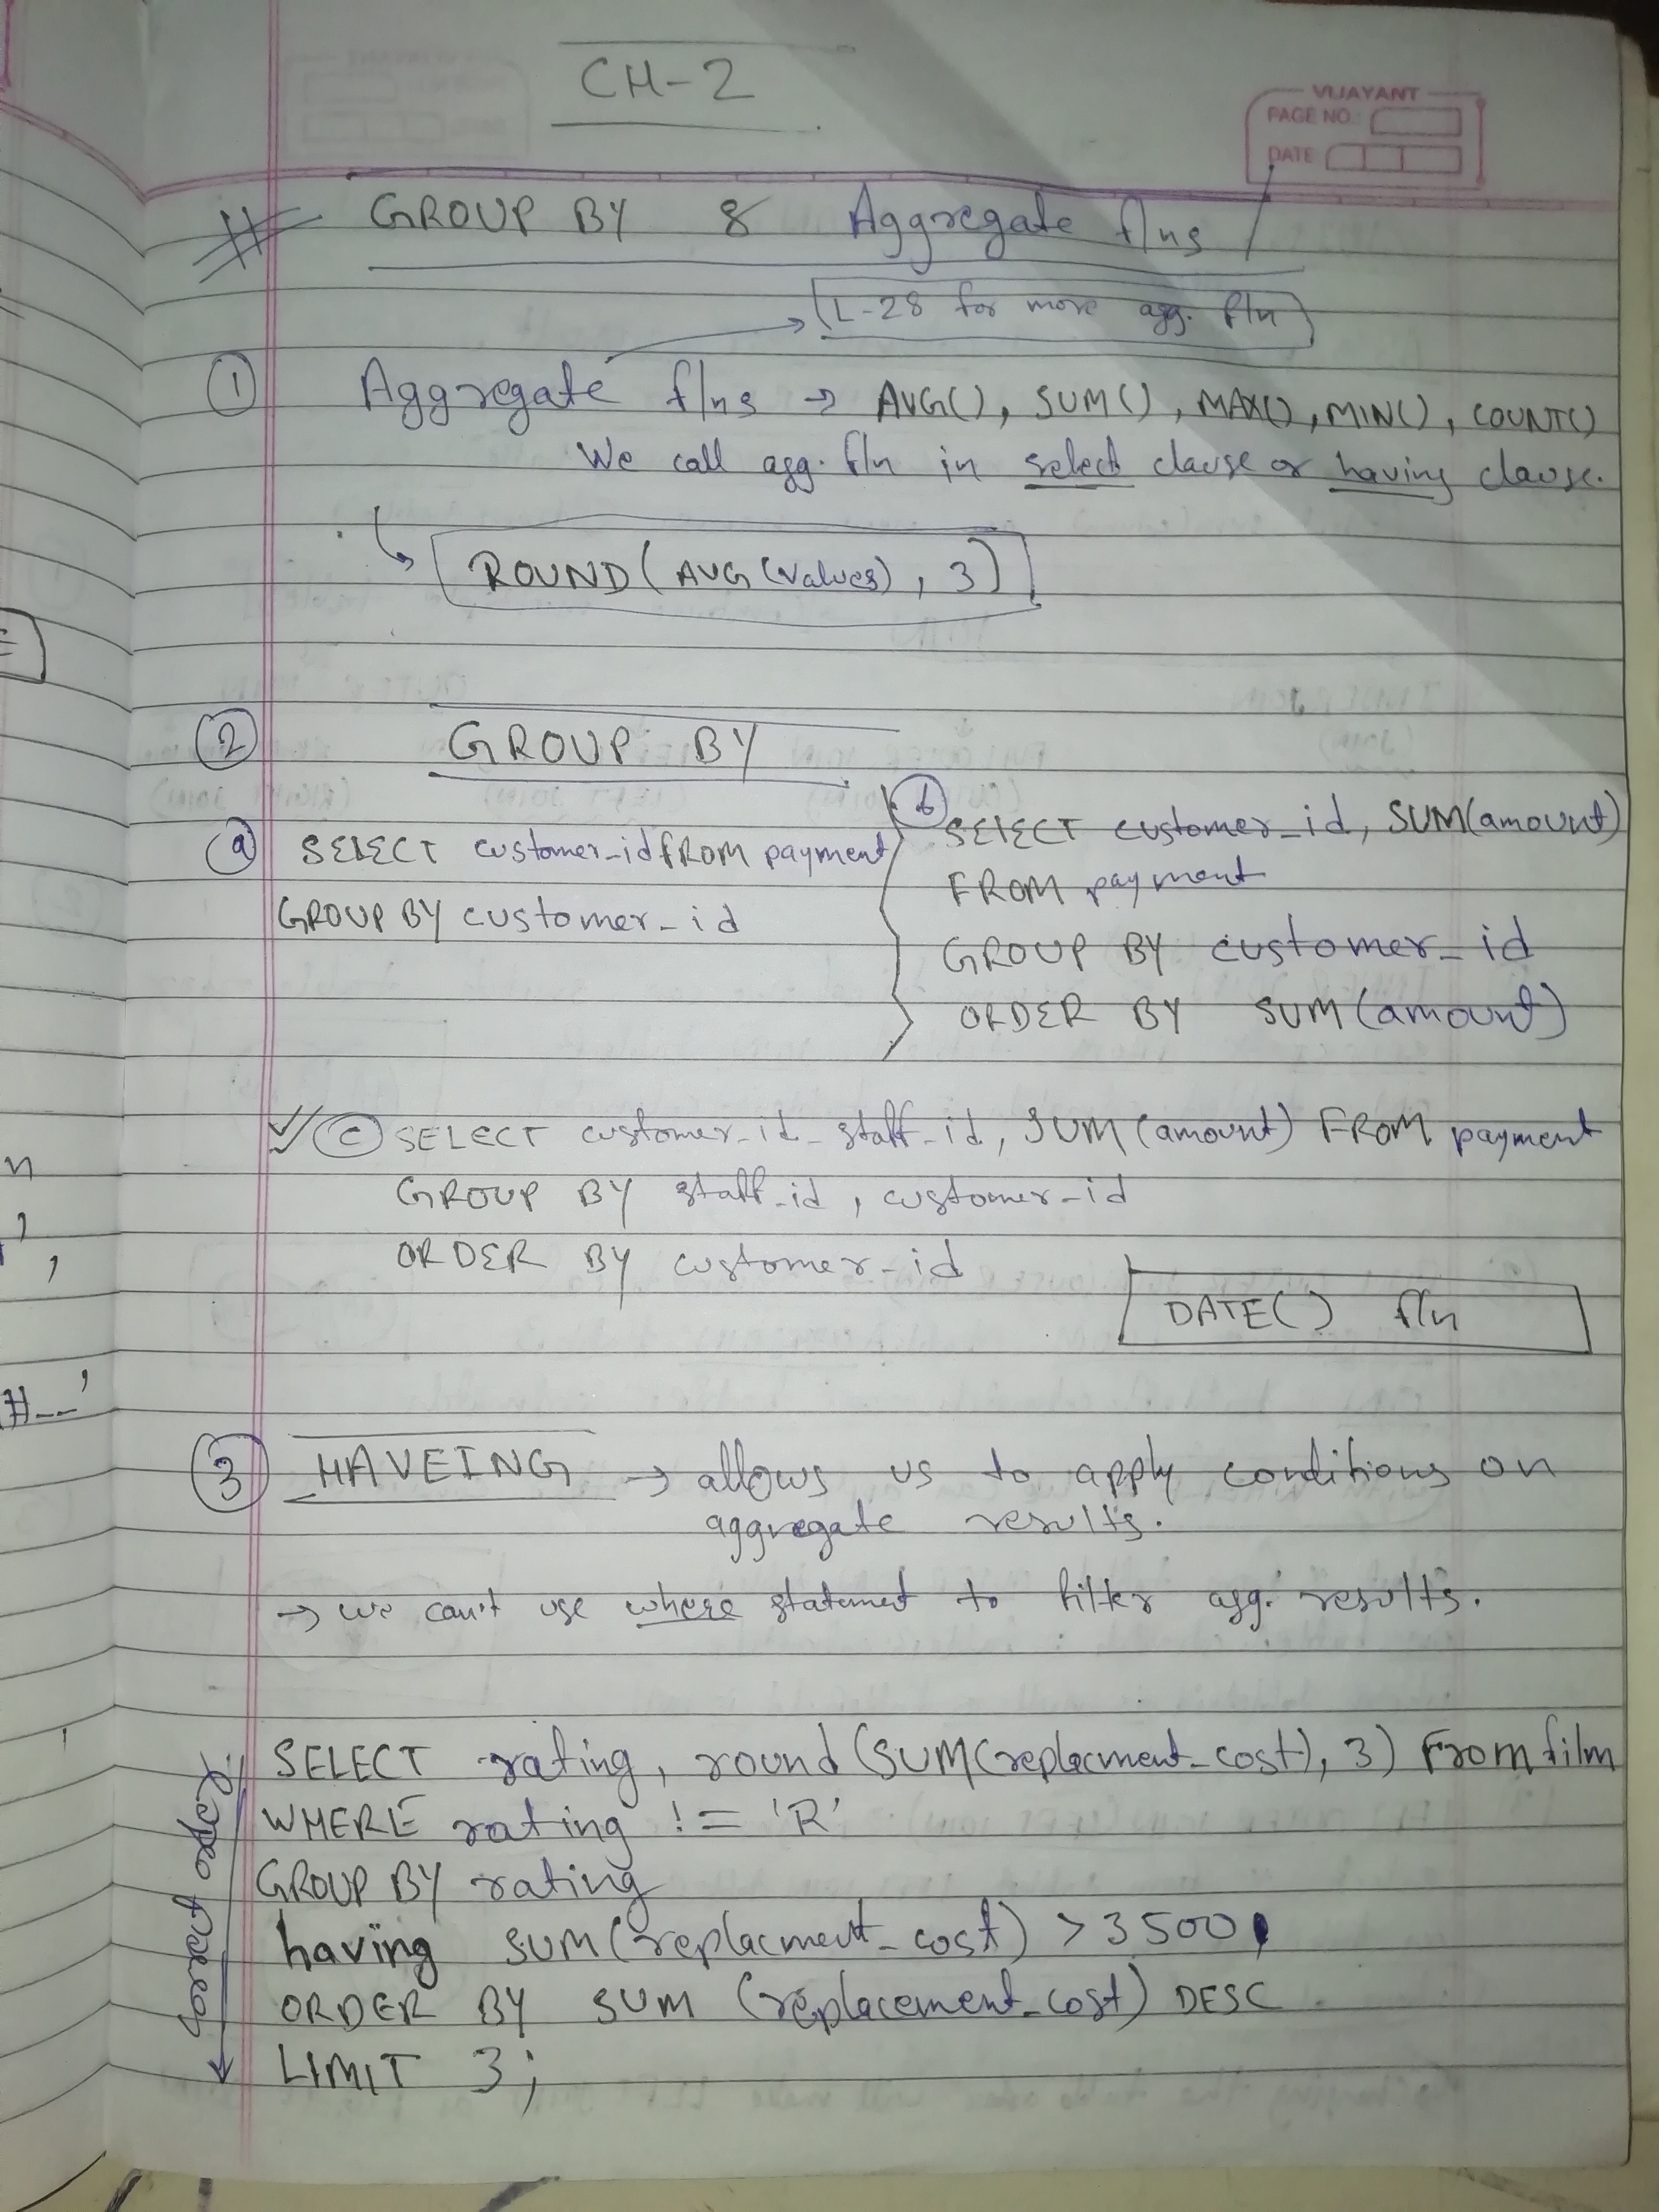 CH-2
VIJAYANT
PAGE NO.
DATE
# GROUP BY & Aggregate f/ns
L-28 for more agg. f/n
① Aggregate f/ns → AVG(), SUM(), MAX(), MIN(), COUNT()
We call agg. f/n in select clause or having clause.
ROUND(AVG(values), 3)
② GROUP BY
ⓐ SELECT customer_id FROM payment
GROUP BY customer_id
ⓑ SELECT customer_id, SUM(amount)
FROM payment
GROUP BY customer_id
ORDER BY SUM(amount)
ⓒ SELECT customer_id_staff_id, SUM(amount) FROM payment
GROUP BY staff_id, customer_id
ORDER BY customer_id
DATE() f/n
③ HAVEING → allows us to apply conditions on
aggregate results.
→ we can't use where statement to filter agg. results.
SELECT rating, round(SUM(replacment_cost), 3) From film
WHERE rating != 'R'
GROUP BY rating
having SUM(replacment_cost) > 3500
ORDER BY SUM (replacement_cost) DESC
LIMIT 3;